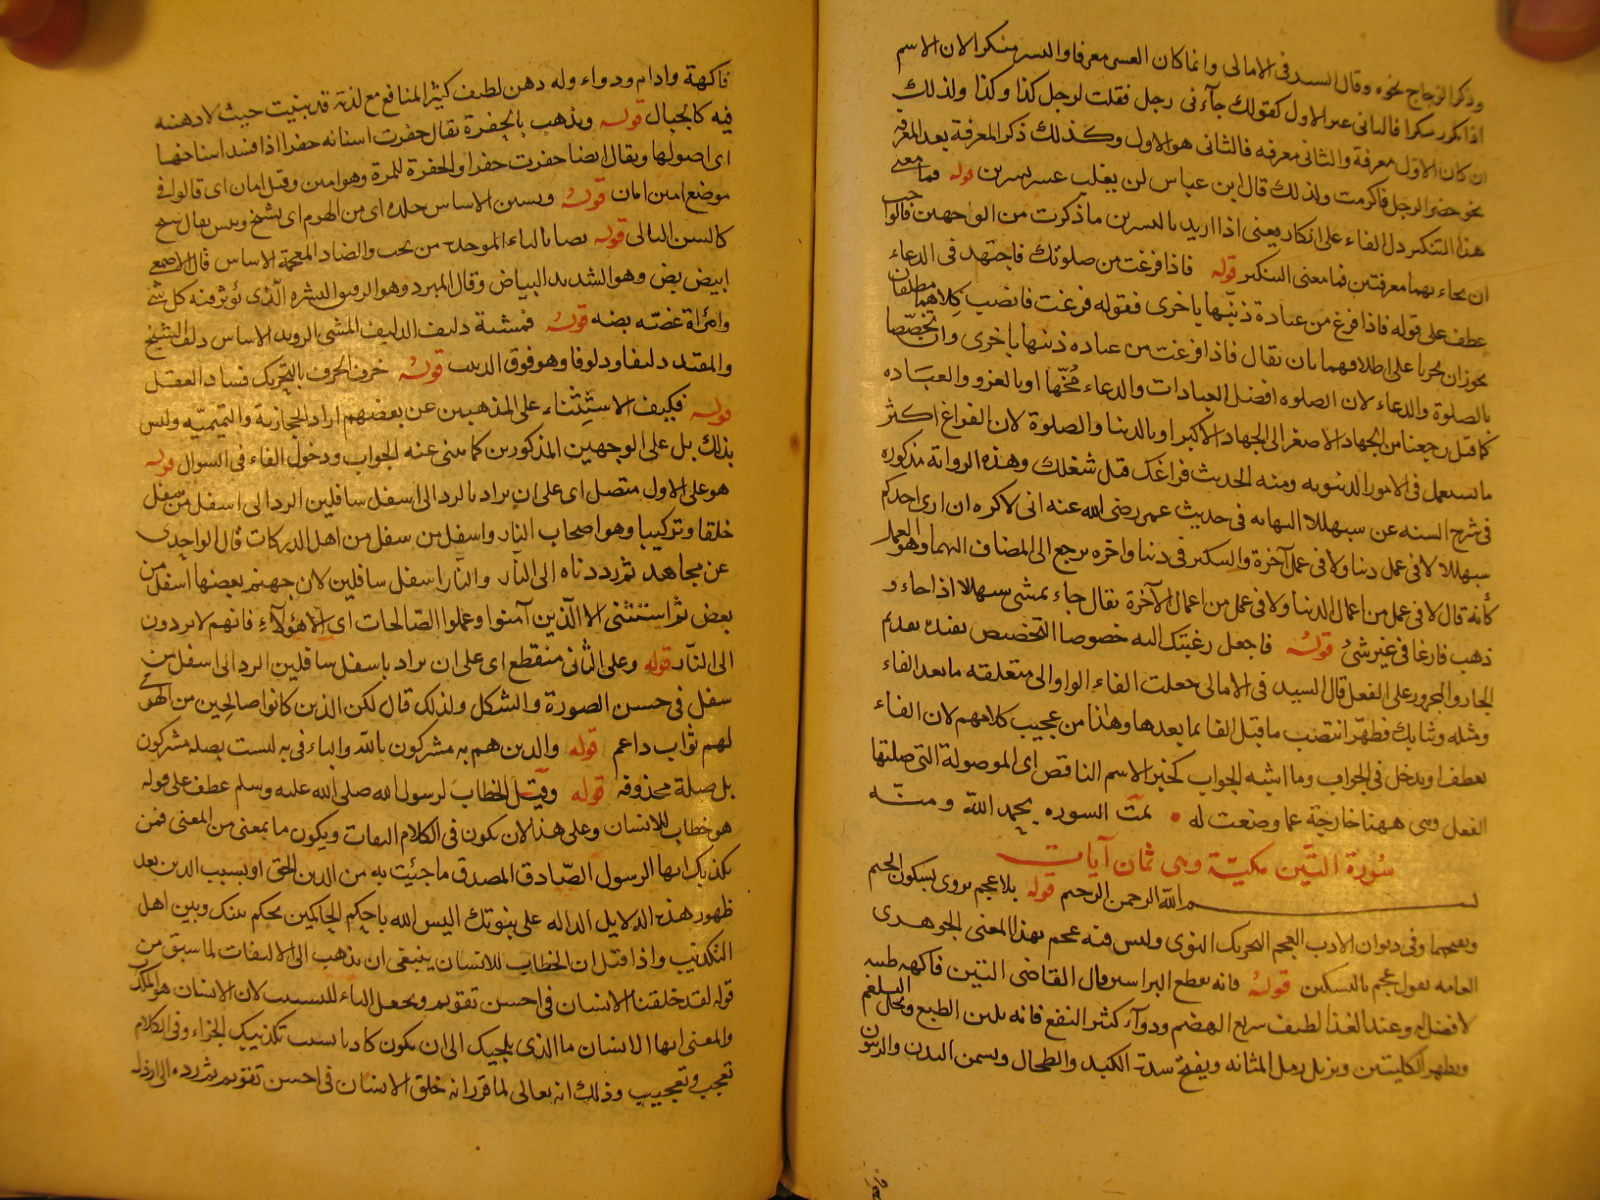 وذكر الزجاج نحوه وقال السيد في الامالى وانما كان العسر معرفا واليسر منكرا لان الاسم
اذا تكرر منكرا فالثانى غير الاول كقولك جآءنى رجل فقلت لرجل كذا وكذا ولذلك
ان كان الاول معرفة والثانى معرفه فالثانى هو الاول وكذلك ذكر المعرفة بعد المعرفه
نحو حضر الرجل فاكرمت ولذلك قال ابن عباس لن يغلب عسر يسرين قوله فما معنى
هذا التنكير دل الفاء على انكار يعنى اذا اريد باليسرين ما ذكرت من الواجهين فالواجب
ان يجاء بهما معرفتين فما معنى التنكير قوله فاذا فرغت من صلوتك فاجتهد فى الدعاء
عطف على قوله فاذا فرغ من عبادة ذنبها باخرى فقوله فرغت فانصب كلاهما مطلقان
يجوز ان يجريا على اطلاقهما بان يقال فاذا فرغت من عباده ذنبها باخرى وان يخصصا
بالصلوة والدعاء لان الصلوه افضل العبادات والدعاء مخها او بالغزو والعباده
كما قيل رجعنا من الجهاد الاصغر الى الجهاد الاكبر او بالدنيا والصلوة لان الفراغ اكثر
ما يستعمل فى الامور الدنيويه ومنه الحديث فراغك قبل شغلك وهذه الرواية مذكوره
فى شرح السنه عن سبهللا النهايه فى حديث عمر رضى الله عنه انى لاكره ان ارى احدكم
سبهللا لا فى عمل دنيا ولا فى عمل آخرة والتنكير فى دنيا واخره يرجع الى المضاف اليهما وهو العمل
كأنه قال لا فى عمل من اعمال الدنيا ولا فى عمل من اعمال الآخرة يقال جاء يمشى سبهللا اذا جاء و
ذهب فارغا فى غير شئ قوله فاجعل رغبتك اليه خصوصا التخصيص يفيده تقديم
الجار والمجرور على الفعل قال السيد فى الامالى جعلت الفاء الواو الى متعلقه ما بعد الفاء
ومثله وثيابك فطهر انتصب ما قبل الفا بما بعدها وهذا من عجيب كلامهم لان الفاء
يعطف او يدخل فى الجواب وما اشبه الجواب كخبر الاسم الناقص اى الموصولة التى صلتها
الفعل وهى ههنا خارجة عما وضعت له تمت السوره بحمد الله ومنه
سورة التين مكية وهى ثمان آيات
بسم الله الرحمن الرحيم قوله بلا عجم يروى بسكون الجيم
وبفتحها وفى ديوان الادب العجم التحريك النوى وليس فيه عجم بهذا المعنى الجوهرى
العامه يقول عجم بالتسكين قوله فانه يقطع البواسير قال القاضى التين فاكهه طيبه
لا فضل له وغذا الغذا لطيف سريع الهضم ودوآء كثير النفع فانه يلين الطبع ويحلل البلغم
ويطهر الكليتين ويزيل رمل المثانه ويفتح سدة الكبد والطحال ويسمن البدن والزيتون
فاكهة
فاكهة وادام ودواء وله دهن لطيف كثير المنافع مع لذة قد ينبت حيث لا دهنيه
فيه كالجبال قوله ويذهب بالحفرة يقال حفرت اسنانه حفرا اذا فسد اسناخها
اى اصولها ويقال ايضا حفرت حفرا والحفرة للمرة وهو امين وقيل امان اى قالوا فى
موضع امين امان قوله ويسنن الاساس جلده اى من الهرم اى يتشنج ويبس يقال شيخ
كالشن البالى قوله بضا بالباء الموحدة من تحت والضاد المعجمة الاساس قال الاصمعى
ابيض بض وهو الشديد البياض وقال المبرد وهو الرقيق البشره الذى يؤثر فيه كل شئ
وامرأة غضه بضه قوله فمشية دليف الدليف المشى الرويد الاساس دلف الشيخ
والمقيد دليفا ودلوفا وهو فوق الدبيب قوله خرف الخرف بالتحريك فساد العقل
قوله فكيف الاستثناء على المذهبين عن بعضهم اراد الحجازية والتميمية وليس
بذلك بل على الوجهين المذكورين كما ينبى عنه الجواب ودخول الفاء فى السوال قوله
هو على الاول متصل اى على ان يراد بالرد الى اسفل سافلين الرد الى اسفل من سفل
خلقا وتركيبا وهو اصحاب النار واسفل من سفل من اهل الدركات قال الواحدى
عن مجاهد ثم رددناه الى النار والنار اسفل سافلين لان جهنم بعضها اسفل من
بعض ثم استثنى الا الذين آمنوا وعملوا الصالحات اى الا هؤلاء فانهم لا يردون
الى النار قوله وعلى الثانى منقطع اى على ان يراد باسفل سافلين الرد الى اسفل من
سفل فى حسن الصورة والشكل ولذلك قال لكن الذين كانوا صالحين من الهرمى
لهم ثواب دائم قوله والدين هم به مشركون بالله والباء فى به ليست بصله مشركون
بل صلة محذوفه قوله وقيل الخطاب لرسول الله صلى الله عليه وسلم عطف على قوله
هو خطاب للانسان وعلى هذا لان يكون فى الكلام التفات ويكون ما بمعنى من المعنى فمن
يكذبك ايها الرسول الصادق المصدق ما جئت به من الدين الحق او بسبب الدين بعد
ظهور هذه الدلايل الداله على نبوتك اليس الله باحكم الحاكمين يحكم بينك وبين اهل
التكذيب واذا قيل ان الخطاب للانسان ينبغى ان يذهب الى الالتفات لما سبق من
قوله لقد خلقنا الانسان فى احسن تقويم ويجعل الباء للسبب لان الانسان هو المكذب
والمعنى ايها الانسان ما الذى يلجيك الى ان يكون كاذبا بسبب تكذيبك الجزاء وفى الكلام
تعجب وتعجيب وذلك انه تعالى لما قرر انه خلق الانسان فى احسن تقويم ثم رده الى ارذل